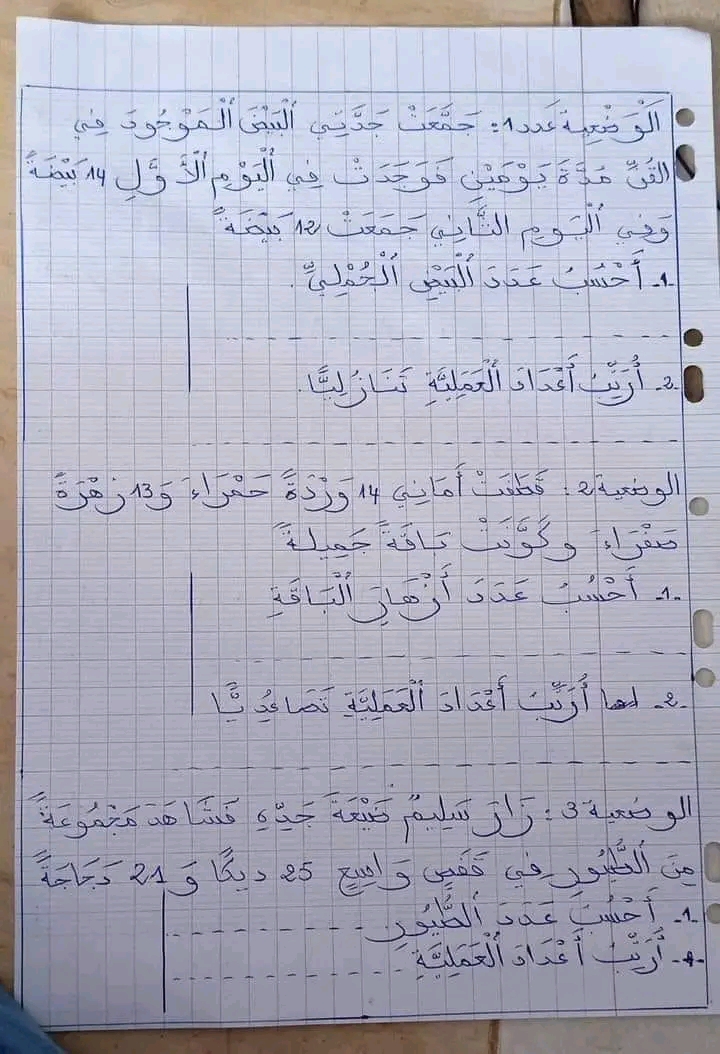 الْوَضْعِيَّة عَدد 1: جَمَّعَتْ جَدَّتِي الْبَيْضَ الْمَوْجُودَ فِي
الْقُنِّ مُدَّةَ يَوْمَيْنِ فَوَجَدَتْ فِي الْيَوْمِ الْأَوَّلِ 14 بَيْضَةً
وَفِي الْيَوْمِ الثَّانِي جَمَعَتْ 12 بَيْضَةً
1- أَحْسُبُ عَدَدَ الْبَيْضِ الْجُمْلِيِّ.
2- أُرَتِّبُ أَعْدَادَ الْعَمَلِيَّةِ تَنَازُلِيًّا.
الوضعية 2: قَطَفَتْ أَمَانِي 14 وَرْدَةً حَمْرَاءَ وَ 13 زَهْرَةً
صَفْرَاءَ وكَوَّنَتْ بَاقَةً جَمِيلَةً
1- أَحْسُبُ عَدَدَ أَزْهَارِ الْبَاقَةِ
2- أُرَتِّبُ أَعْدَادَ الْعَمَلِيَّةِ تَصَاعُدِيًّا
الوضعية 3: زَارَ سَلِيمٌ ضَيْعَةَ جَدِّهِ فَشَاهَدَ مَجْمُوعَةً
مِنَ الطُّيُورِ فِي قَفَصٍ وَاسِعٍ 25 دِيكًا وَ 21 دَجَاجَةً
1- أَحْسُبُ عَدَدَ الطُّيُورِ
- أُرَتِّبُ أَعْدَادَ الْعَمَلِيَّةِ